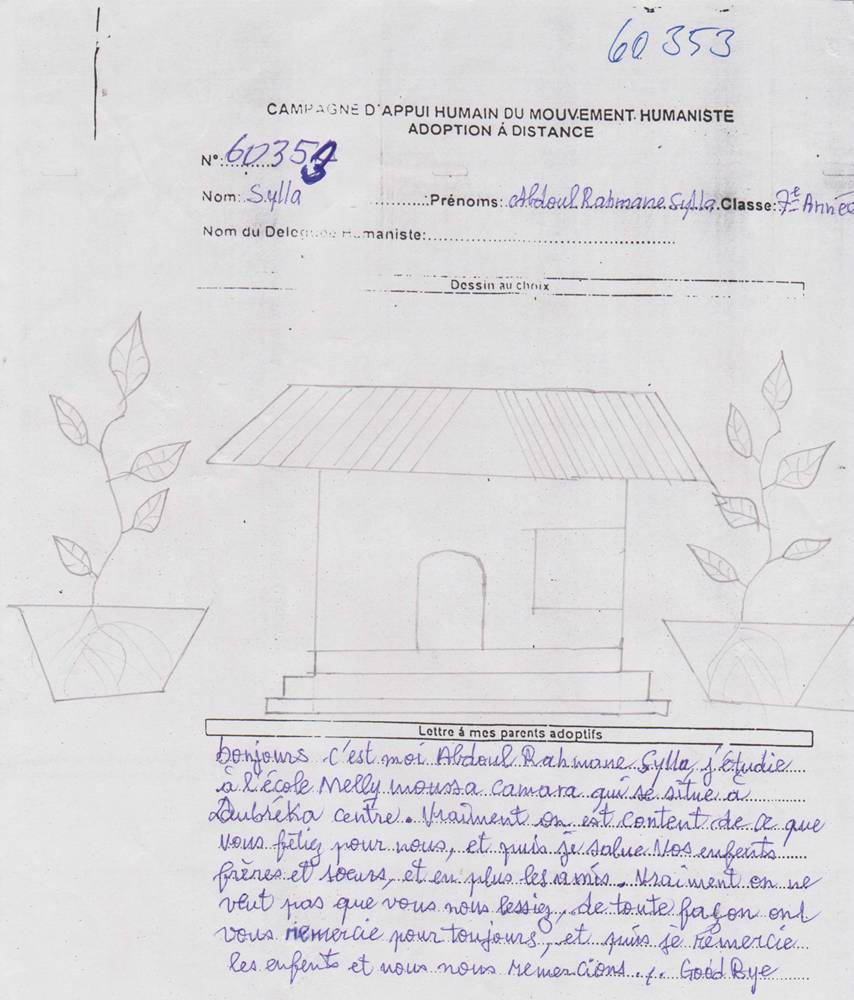 60353
CAMPAGNE D'APPUI HUMAIN DU MOUVEMENT HUMANISTE
ADOPTION Á DISTANCE
N°: 60353
Nom: Sylla Prénoms: Abdoul Rahmane Sylla Classe: 7e Année
Nom du Humaniste:
Dessin au choix
Lettre á mes parents adoptifs
bonjours c'est moi Abdoul Rahmane Sylla, j'étudie
à l'école Melly moussa camara qui se situe à
Dubréka centre. Vraiment on est content de ce que
vous fêtiez pour nous, et puis je salue Vos enfants
frères et sœurs, et en plus les amis. Vraiment on ne
veut pas que vous nous lessiez, de toute façon ont
vous remercie pour toujours, et puis je remercie
les enfants et nous nous remercions ./. Good Bye